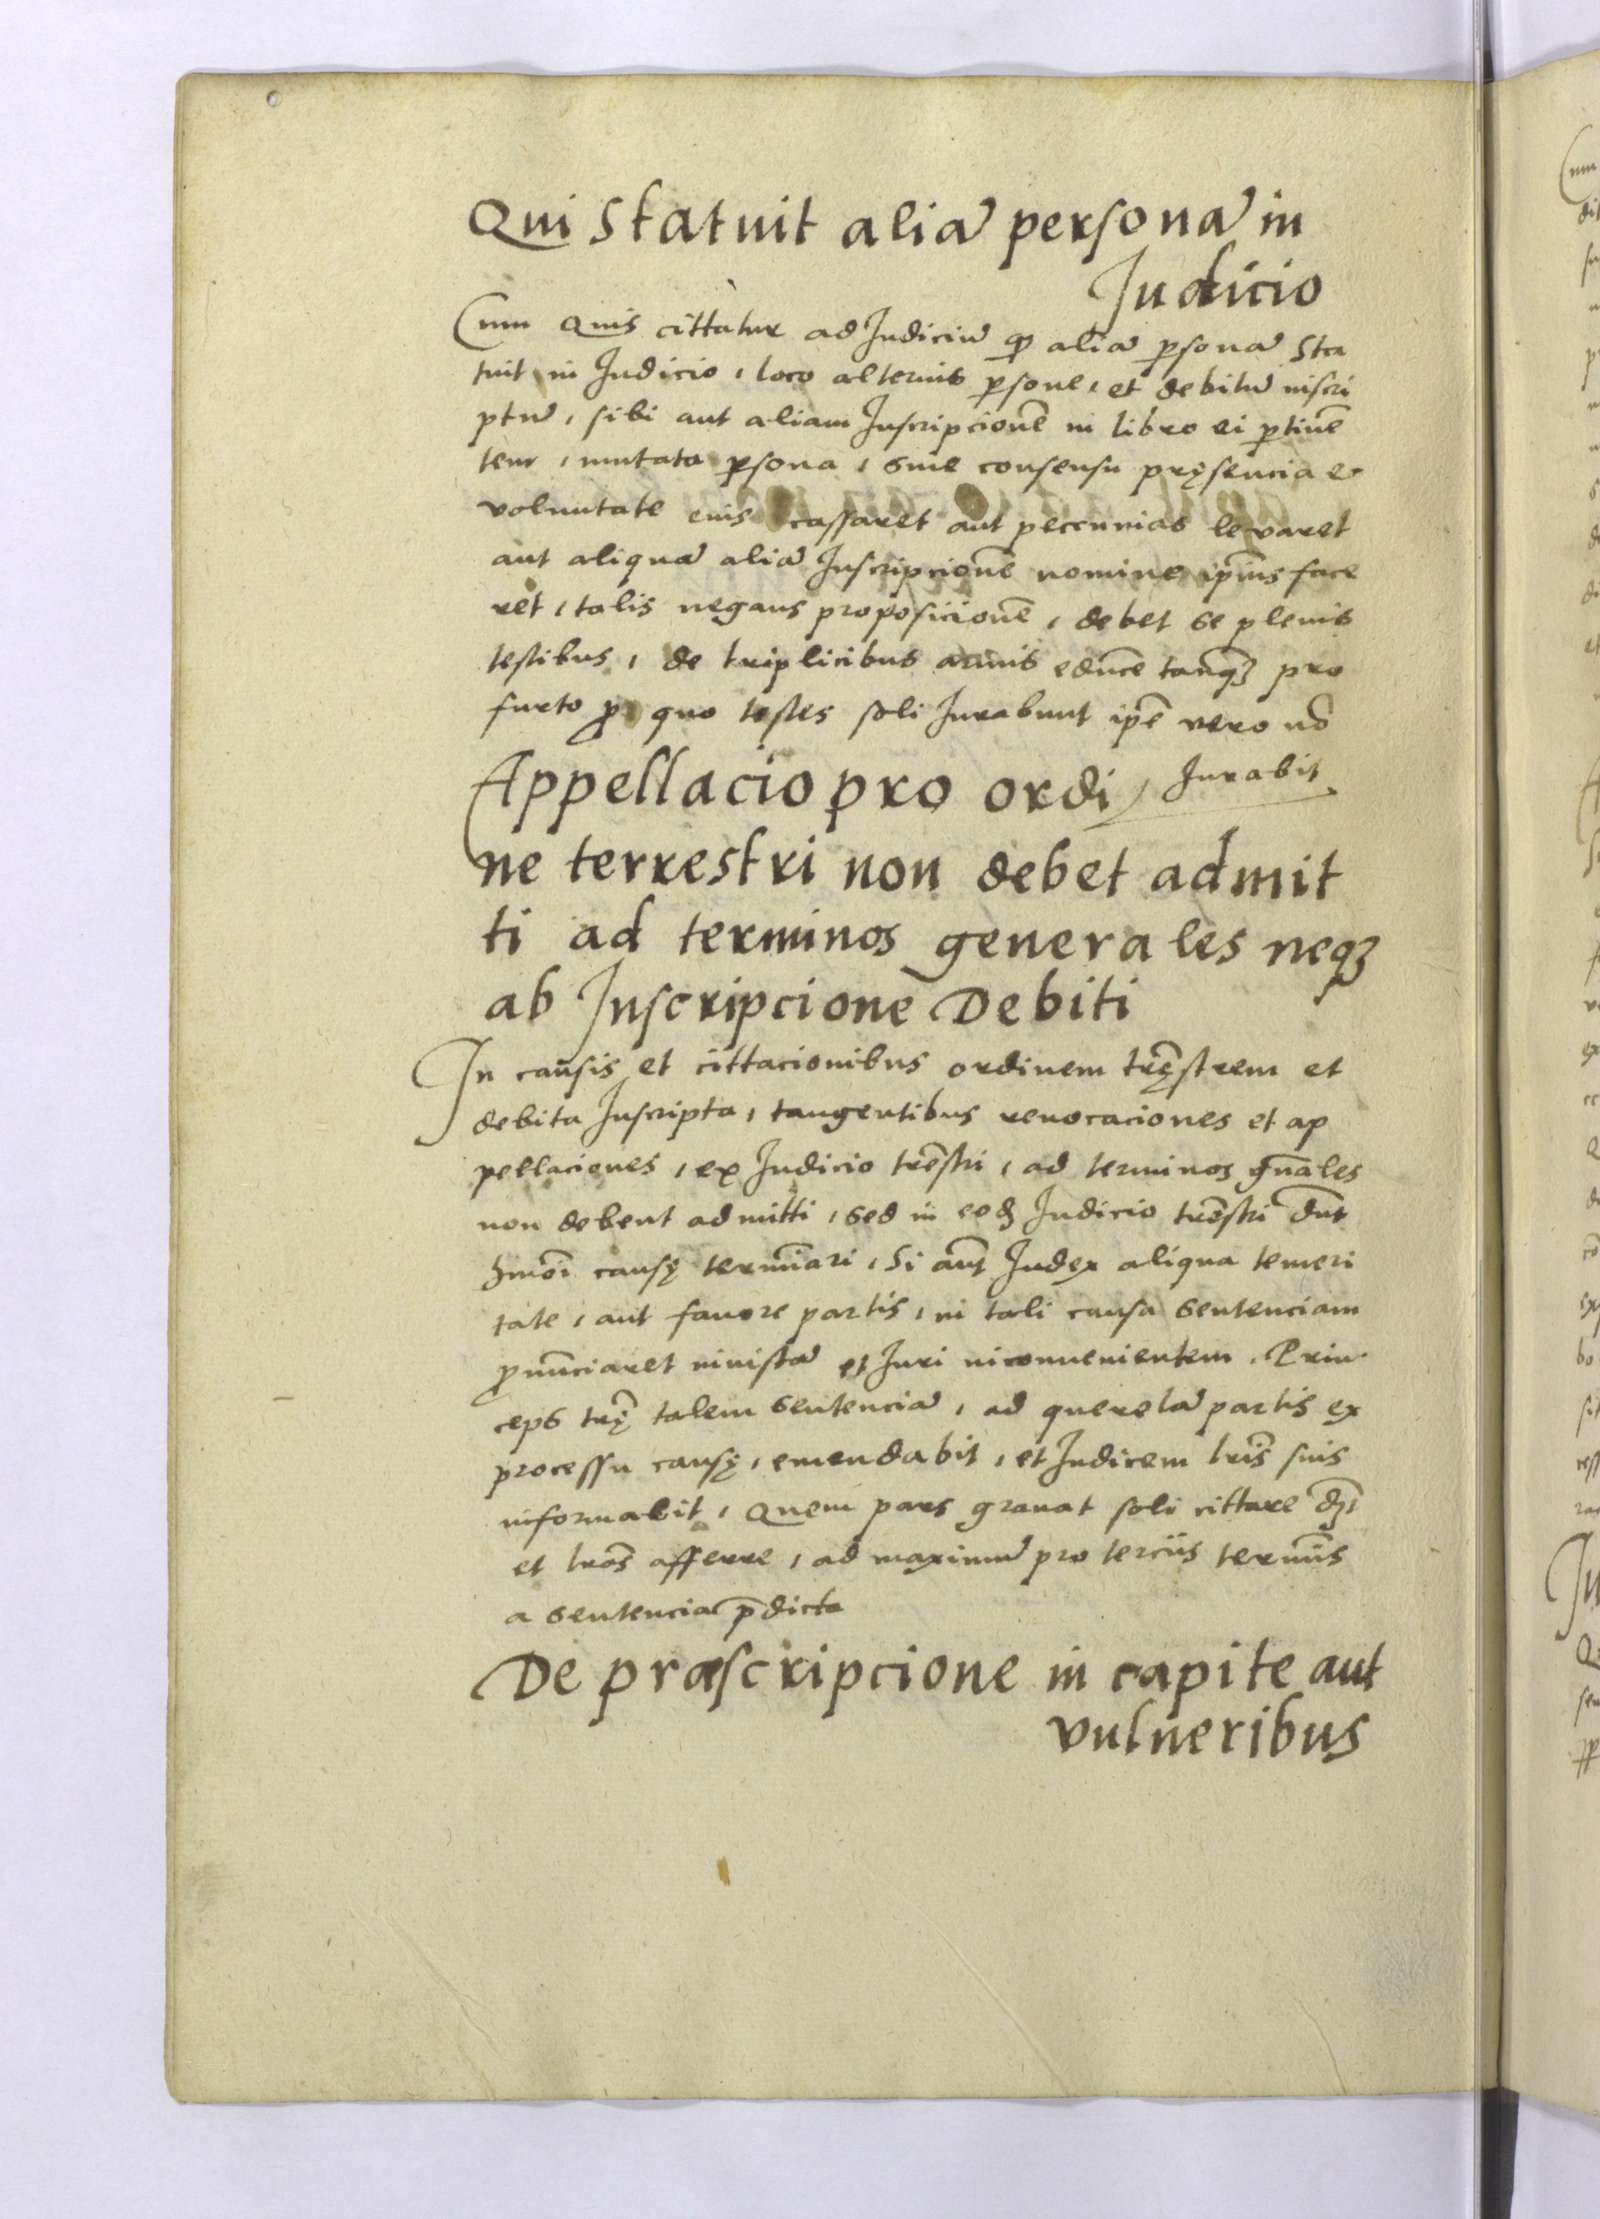 Qui Statuit aliā personā in
Judicio
Cum Quis cittatur ad Judiciū ꝙ aliā ꝑsonā Sta
tuit in Judicio, loco alterius ꝑsone, et debitū inscri
ptū, sibi aut aliam Inscripcionē in libro ei ꝑtinē
tem, mutata ꝑsona, sine consensu pręsencia et
voluntate eius cassaret aut peccunias levaret
aut aliquā aliā Inscripcionē nomine ip̄ius face
ret, talis negans proposicionē, debet se plenis
testibus, de triplicibus armis educē tanqꝫ pro
furto ꝓ quo testes soli Jurabunt ip̄e vero nō
Jurabit
Appellacio pro ordi
ne terrestri non debet admit
ti ad terminos generales neqꝫ
ab Inscripcione Debiti
In causis et cittacionibus ordinem trę̄strem et
debita Inscripta, tangentibus revocaciones et ap
pellaciones, ex Judicio trēstri, ad terminos gn̄ales
non debent admitti, sed in eodꝫ Judicio trēstri dn̄t
hm̄oi causę termīari, Si aūt Judex aliqua temeri
tate, aut favore partis, in tali causa sentenciam
ꝓnūnciaret iniustā et Juri inconvenientem. Prin
ceps trę̄ talem sentenciā, ad querelā partis ex
processu causę, emendabit, et Judicem lr̄is suis
informabit, Quem pars gravat soli cittare dꝫ
et lrā̄s afferre, ad maximū pro terciis termīs
a sentencia p̄dicta
De præscripcione in capite aut
vulneribus